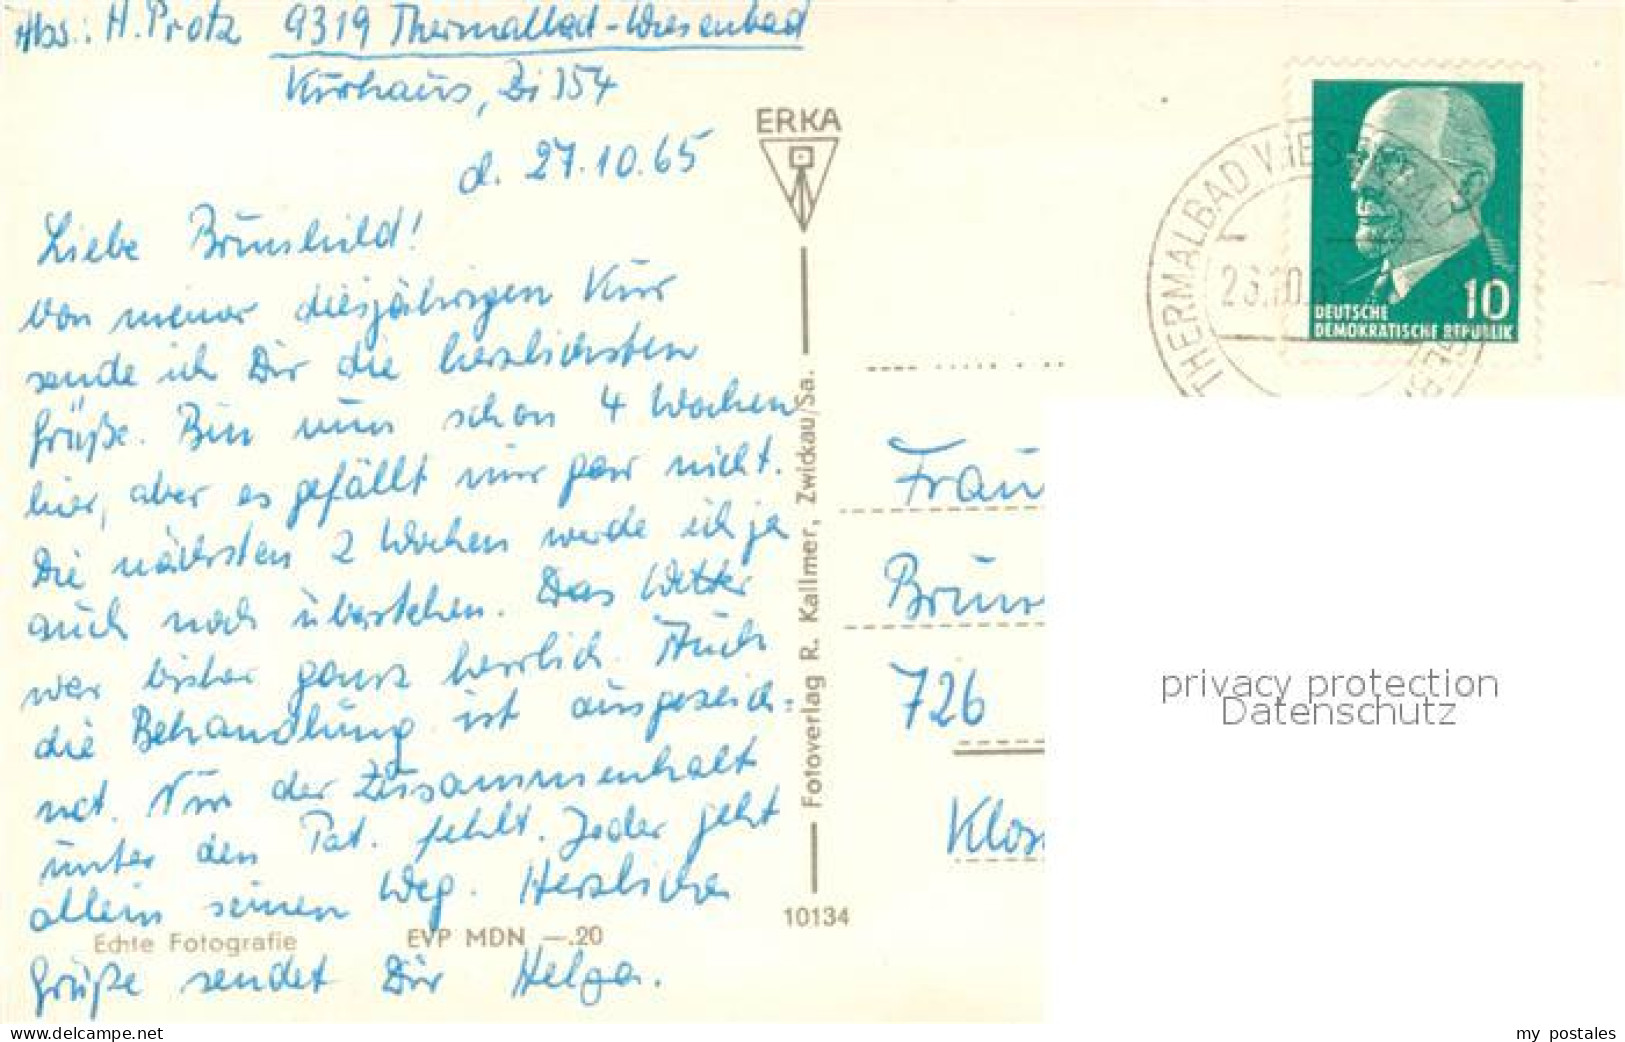 Abs.: H. Protz 9319 Thermalbad-Wiesenbad
Kurhaus, Zi 154
d. 27.10.65
Liebe Brunhild!
Von meiner diesjährigen Kur
sende ich Dir die herzlichsten
Grüße. Bin nun schon 4 Wochen
hier, aber es gefällt mir gar nicht.
Die nächsten 2 Wochen werde ich ja
auch noch überstehen. Das Wetter
war bisher ganz herrlich. Auch
die Behandlung ist ausgezeich=
net. Nur der Zusammenhalt
unter den Pat. fehlt. Jeder geht
allein seinen Weg. Herzliche
Grüße sendet Dir Helga.
Echte Fotografie EVP MDN —.20
ERKA
Fotoverlag R. Kallmer, Zwickau/Sa.
10134
THERMALBAD WIESENBAD
10
DEUTSCHE
DEMOKRATISCHE REPUBLIK
Frau
Brun
726
Klos
privacy protection
Datenschutz
www.delcampe.net
my_postales